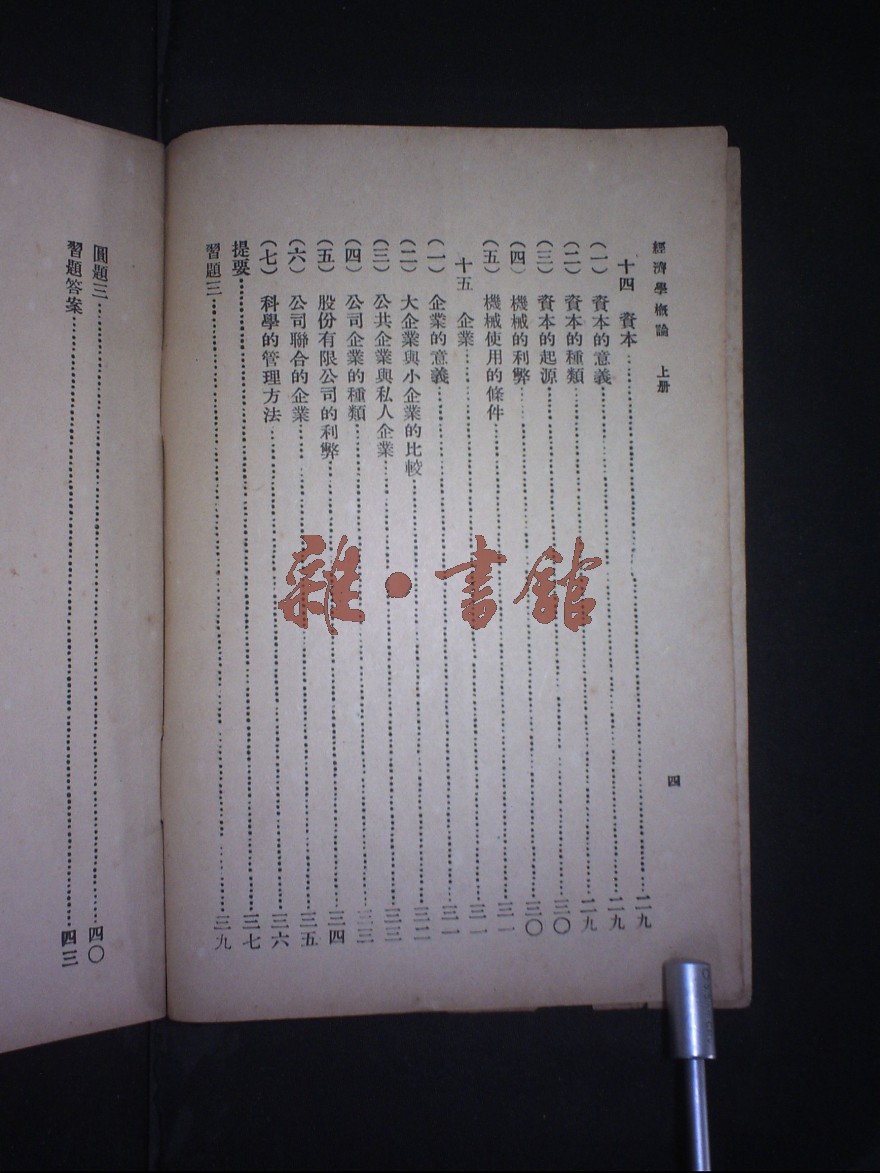 經濟學概論 上册
四
十四 資本……二九
(一) 資本的意義……二九
(二) 資本的種類……二九
(三) 資本的起源……三〇
(四) 機械的利弊……三〇
(五) 機械使用的條件……三一
十五 企業……三一
(一) 企業的意義……三一
(二) 大企業與小企業的比較……三二
(三) 公共企業與私人企業……三三
(四) 公司企業的種類……三三
(五) 股份有限公司的利弊……三四
(六) 公司聯合的企業……三五
(七) 科學的管理方法……三六
提要……三七
習題三……三九
圓題三……四〇
習題答案……四三
雜·書館